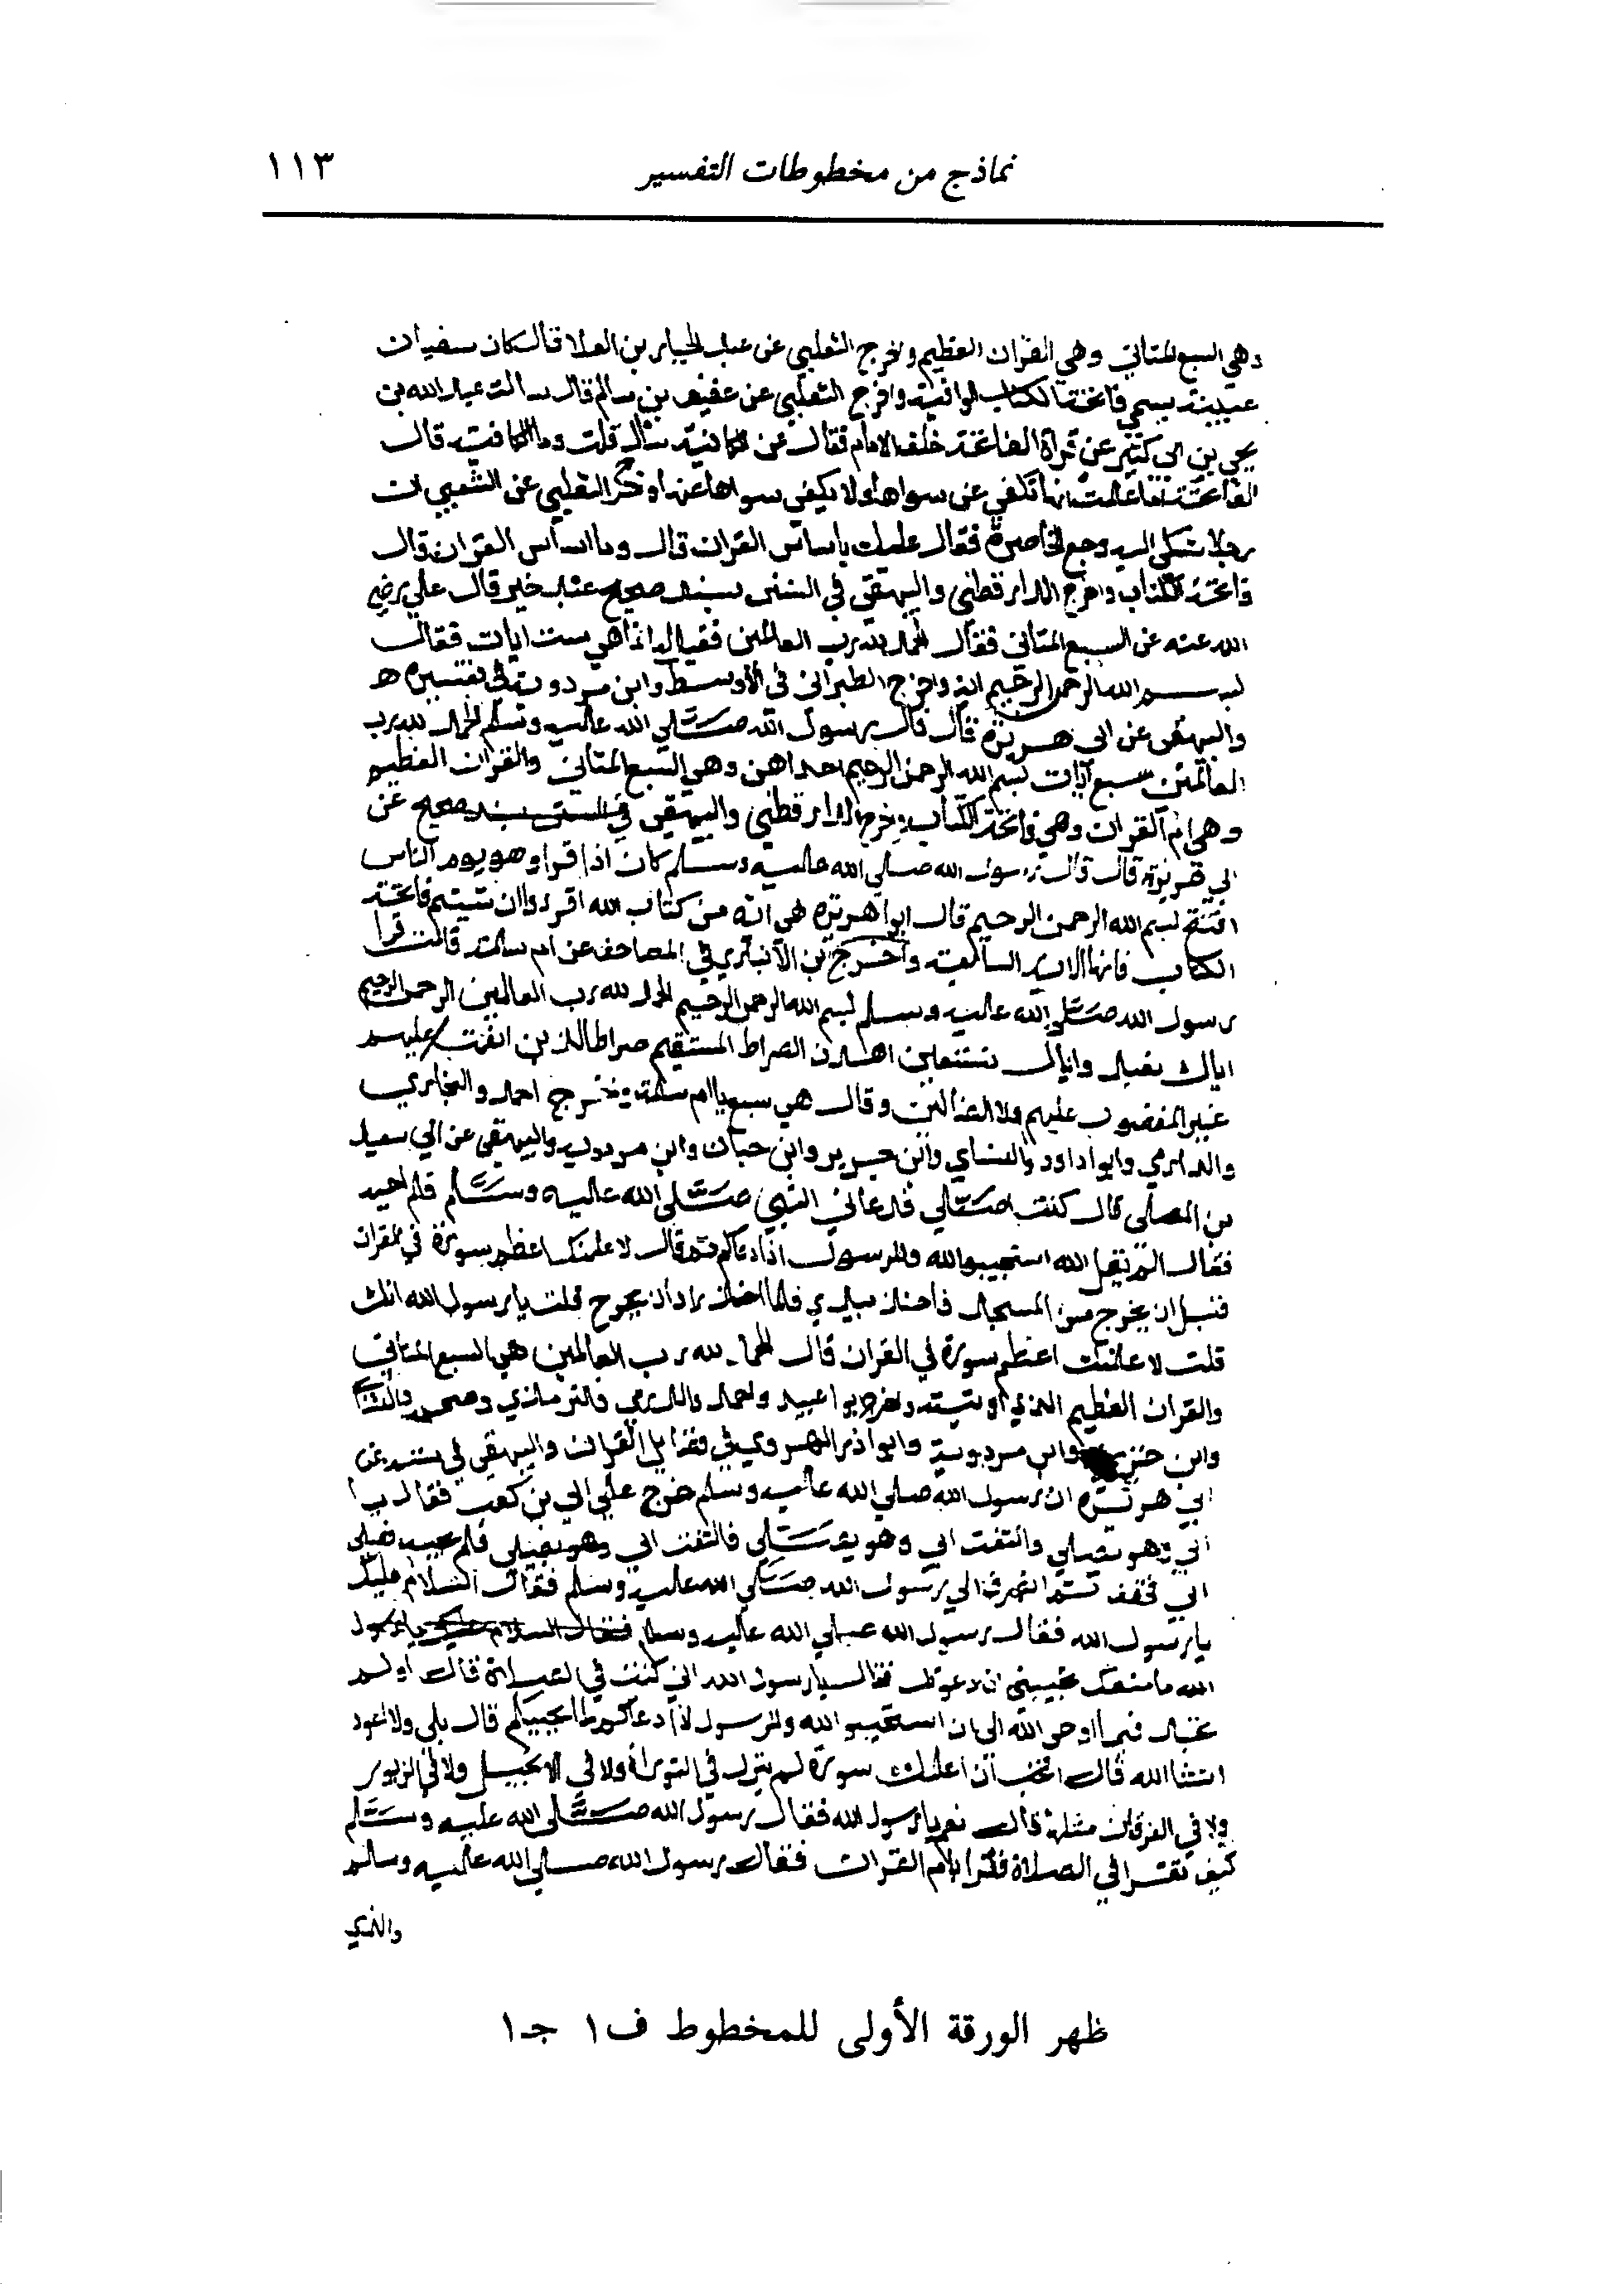 نماذج من مخطوطات التفسير ١١٣
وهي السبع المثاني وهي القران العظيم واخرج الثعلبي عن عبد الجبار بن العلا قال كان سفيان
عيينة يسمي فاتحة الكتاب الوافية واخرج الثعلبي عن عفيف بن سالم قال سالت عبد الله بن
يحي بن ابي كثير عن قراة الفاتحة خلف الامام فقال عن الكافية تسال قلت وما الكافية قال
الفاتحة اما علمت انها تكفي عن سواها ولا يكفي سواها عنها واخرج الثعلبي عن الشعبي ان
رجلا شكى اليه وجع الخاصرة فقال عليك باساس القران قال وما اساس القران قال
فاتحة الكتاب واخرج الدارقطني والبيهقي في السنن بسند صحيح عن عبد خير قال علي رضي
الله عنه عن السبع المثاني فقال الحمد لله رب العالمين فقيل له انما هي ست ايات فقال
بسم الله الرحمن الرحيم اية واخرج الطبراني في الاوسط وابن مردوية في تفسيره
والبيهقي عن ابي هريرة قال قال رسول الله صلي الله عليه وسلم الحمد لله رب
العالمين سبع آيات بسم الله الرحمن الرحيم احداهن وهي السبع المثاني والقران العظيم
وهي ام القران وهي فاتحة الكتاب واخرج الدارقطني والبيهقي في السنن بسند صحيح عن
ابي هريرة قال قال رسول الله صلي الله عليه وسلم كان اذا قرا وهو يوم الناس
افتتح بسم الله الرحمن الرحيم قال ابوا هريرة هي اية من كتاب الله اقرءوا ان شيتم فاتحة
الكتاب فانها الاية السابعة واخرج ابن الانباري في المصاحف عن ام سلمة قالت قرا
رسول الله صلي الله عليه وسلم بسم الله الرحمن الرحيم الحمد لله رب العالمين الرحمن الرحيم
اياك نعبد واياك نستعين اهدنا الصراط المستقيم صراط الذين انعمت عليهم
غير المغضوب عليهم ولا الضالين وقال هي سبع يا ام سلمة واخرج احمد والبخاري
والدارمي وابوا داود والنساي وابن جرير وابن حبان وابن مردويه والبيهقي عن ابي سعيد
بن المعلى قال كنت اصلي فدعاني النبي صلى الله عليه وسلم فلم اجبه
فقال الم يقل الله استجيبوا لله وللرسول اذا دعاكم ثم قال لاعلمنك اعظم سورة في القران
قبل ان يخرج من المسجد فاخذ بيدي فلما اراد ان يخرج قلت يا رسول الله انك
قلت لاعلمنك اعظم سورة في القران قال الحمد لله رب العالمين هي السبع المثاني
والقران العظيم الذي اوتيته واخرج ابوا عبيد واحمد والدارمي والترمذي وصححه والنساي
وابن خزيمة وابن مردوية وابوا ذر الهروي في فضايل القران والبيهقي في سننه عن
ابي هريرة ان رسول الله صلي الله عليه وسلم خرج علي ابي بن كعب فقال يا
ابي وهو يصلي والتفت ابي وهو يصلي فالتفت ابي وهو يصلي فلم يجبه فصلى
ابي فخفف ثم انصرف الي رسول الله صلي الله عليه وسلم فقال السلام عليك
يا رسول الله فقال رسول الله صلي الله عليه وسلم فقال السلام عليك يا رسول
الله ما منعك تجيبني ان دعوتك فقال يا رسول الله اني كنت في الصلاة قال اولم
تجد فيما اوحى الله الي ان استجيبوا لله وللرسول اذا دعاكم لما يحييكم قال بلي ولا اعود
انشا الله قال اتحب ان اعلمك سورة لم ينزل في التوراة ولا في الانجيل ولا في الزبور
ولا في الفرقان مثلها قال نعم يا رسول الله فقال رسول الله صلى الله عليه وسلم
كيف تقرا في الصلاة فقرا بام القران فقال رسول الله صلي الله عليه وسلم
والذي
ظهر الورقة الأولى للمخطوط ف١ جـ١